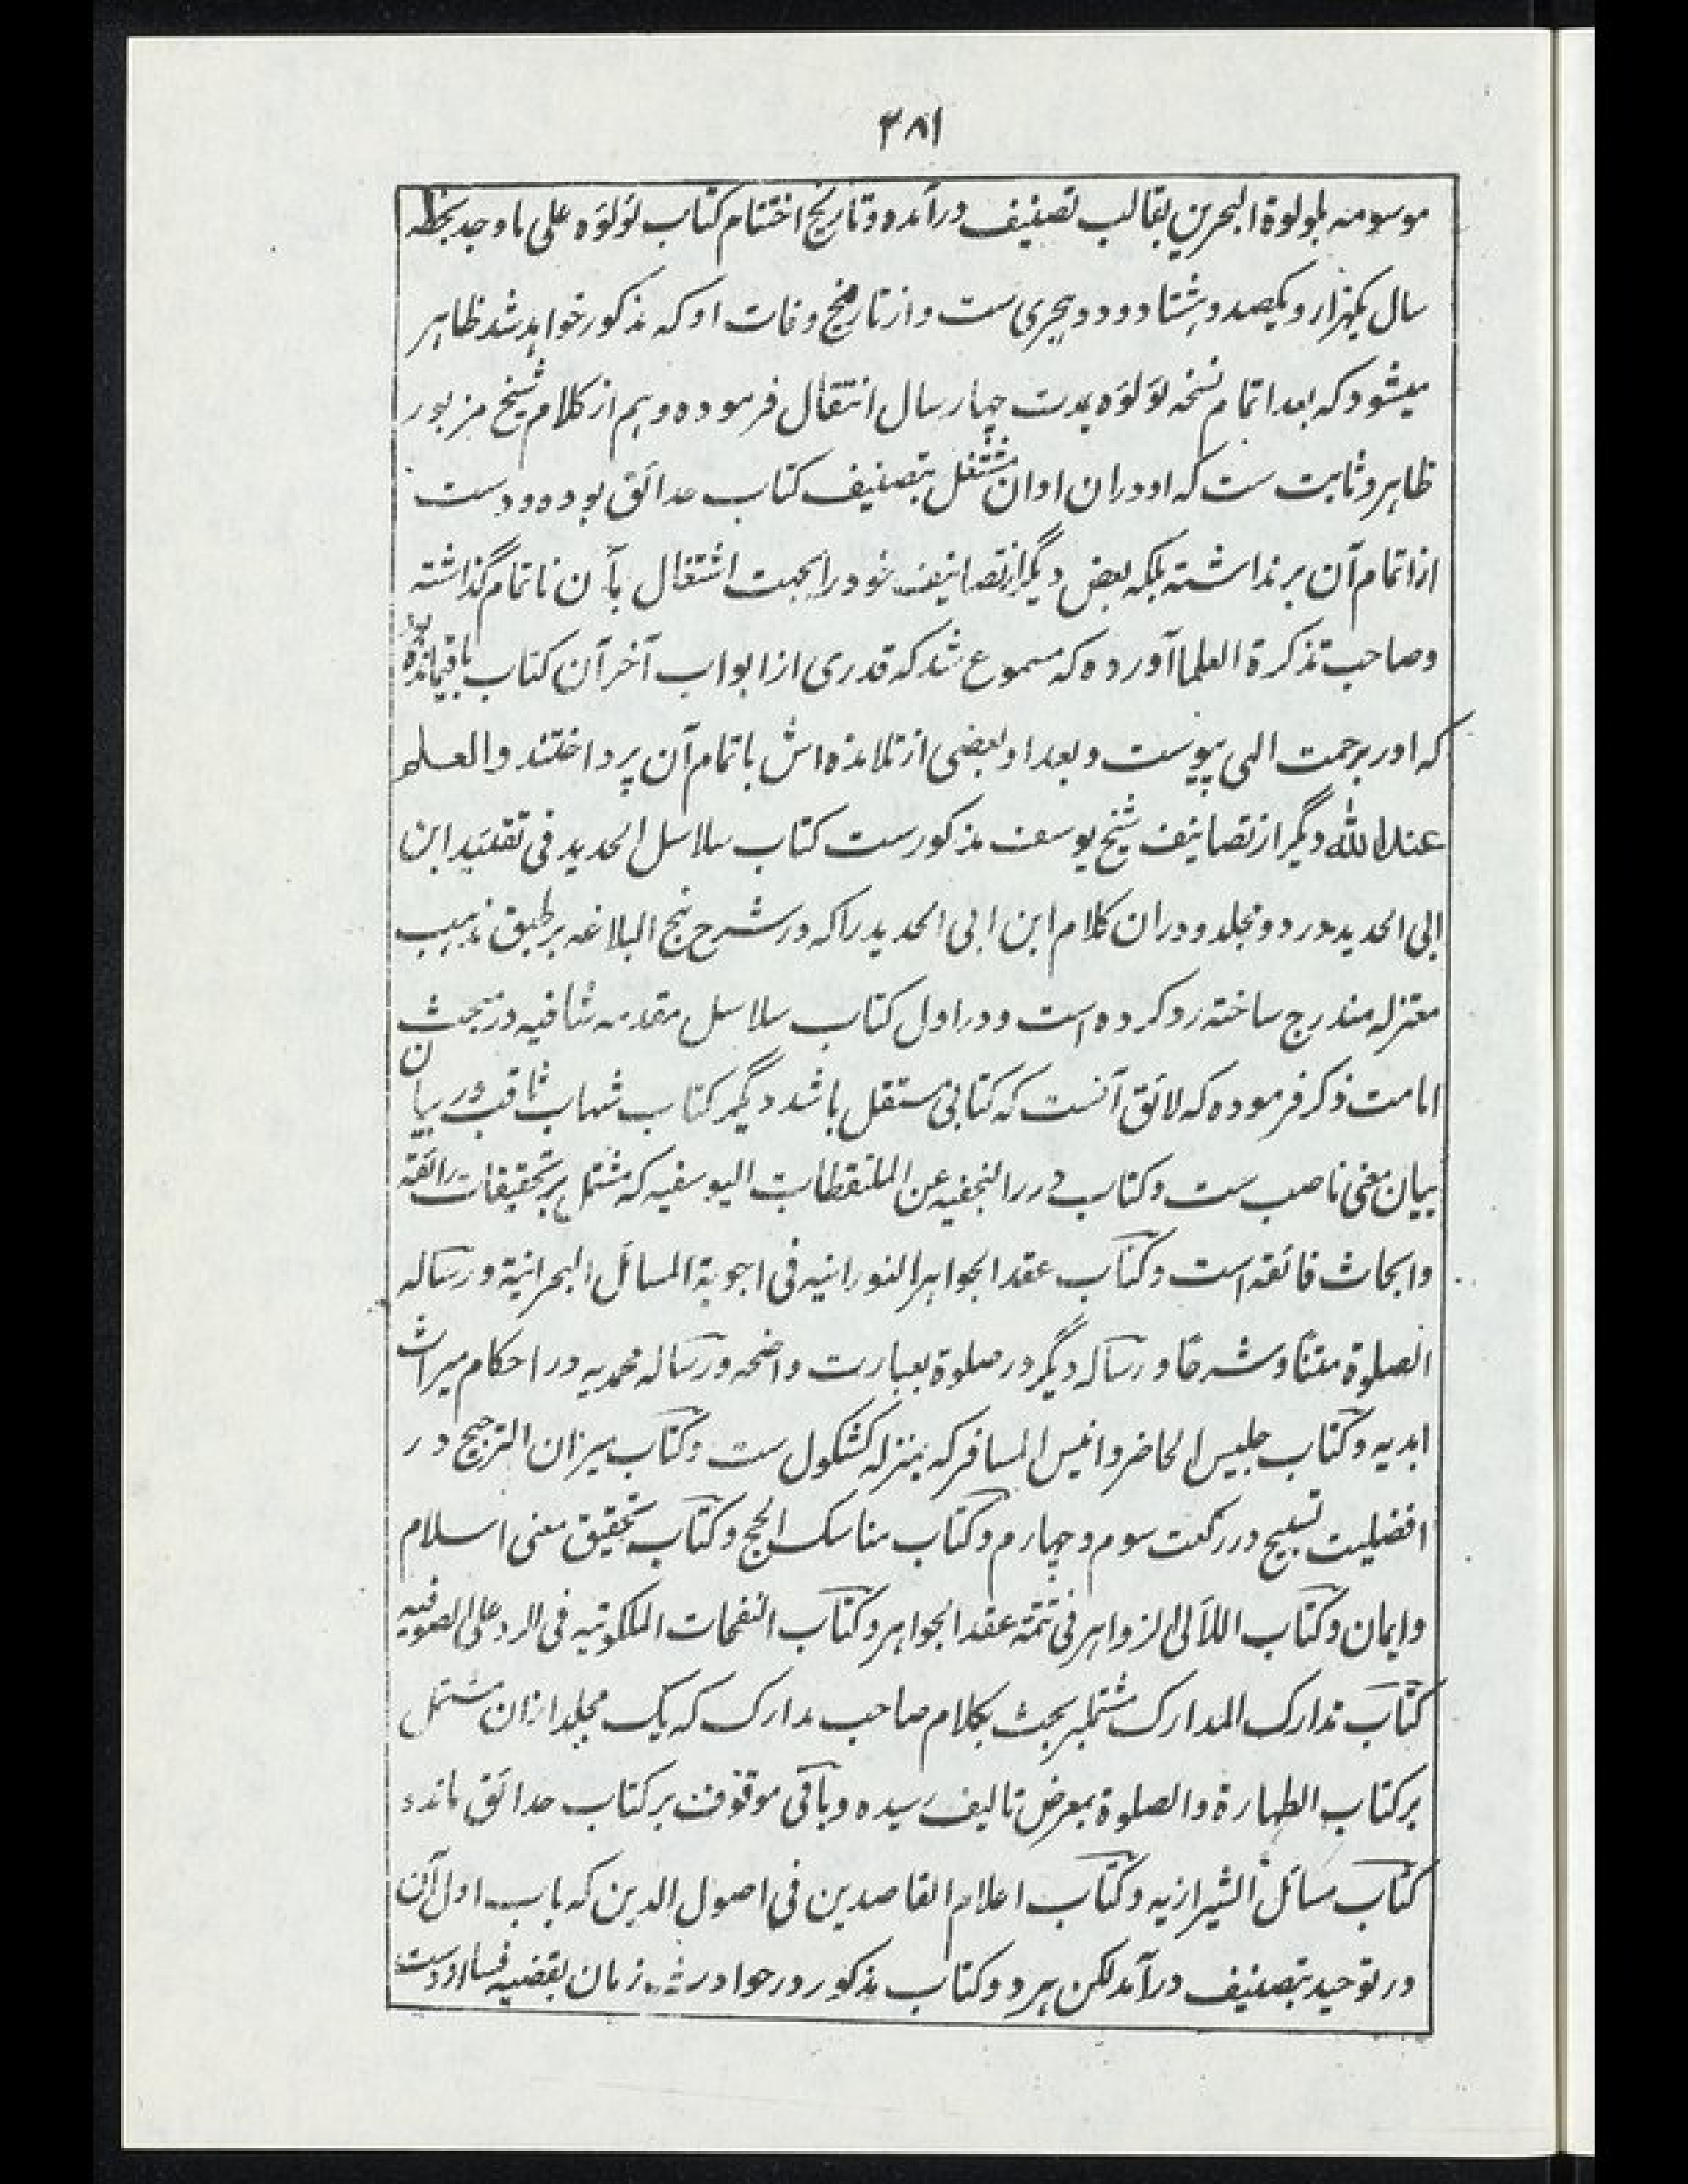 ۲۸۱
موسومه بلولوة البحرین بقالب تصنیف درآمده و تاریخ اختتام کتاب لؤلؤه علی ما وجد بخطه
سال یکهزار و یکصد و هشتاد و دو هجری ست و از تاریخ وفات او که مذکور خواهد شد ظاهر
میشود که بعد اتمام نسخه لؤلؤه بمدت چهار سال انتقال فرموده و هم از کلام شیخ مزبور
ظاهر و ثابت ست که او دران اوان مشتغل بتصنیف کتاب حدائق بوده و دست
از اتمام آن برنداشته بلکه بعض دیگر از تصانیف خود را بجهت اشتغال بآن ناتمام گذاشته
و صاحب تذکرة العلما آورده که مسموع شد که قدری از ابواب آخر آن کتاب باقیمانده بود
که او برحمت الهی پیوست و بعد او بعضی از تلامذه اش باتمام آن پرداختند والعلم
عند الله دیگر از تصانیف شیخ یوسف مذکورست کتاب سلاسل الحدید فی تقیید ابن
ابی الحدید در دو مجلد و دران کلام ابن ابی الحدید را که در شرح نهج البلاغه بر طبق مذهب
معتزله مندرج ساخته رد کرده است و در اول کتاب سلاسل مقدمه شافیه در مبحث
امامت ذکر فرموده که لائق آنست که کتابی مستقل باشد دیگر کتاب شهاب ثاقب در بیان
بیان معنی ناصب ست و کتاب درر النجفیه عن الملتقطات الیوسفیه که مشتمل بر تحقیقات رائقه
و ابحاث فائقه است و کتاب عقد الجواهر النورانیه فی اجوبة المسائل البحرانیة و رساله
الصلوة متنًا و شرحًا و رساله دیگر در صلوة بعبارت واضحه و رساله محمدیه در احکام میراث
ابدیه و کتاب جلیس الحاضر و انیس المسافر که بمنزله کشکول ست و کتاب میزان الترجیح در
افضلیت تسبیح در رکعت سوم و چهارم و کتاب مناسک الحج و کتاب تحقیق معنی اسلام
و ایمان و کتاب اللآلی الزواهر فی تتمه عقد الجواهر و کتاب النفحات الملکوتیه فی الرد علی الصوفیه
کتاب تدارک المدارک مشتمل بر بحث بکلام صاحب مدارک که یک مجلد ازان مشتمل
بر کتاب الطهارة والصلوة بمعرض تالیف رسیده و باقی موقوف بر کتاب حدائق مانده
کتاب مسائل الشیرازیه و کتاب اعلام القاصدین فی اصول الدین که باب اول آن
در توحید بتصنیف درآمد لکن هر دو کتاب مذکور در حوادث زمان بقضیه فسا از دست